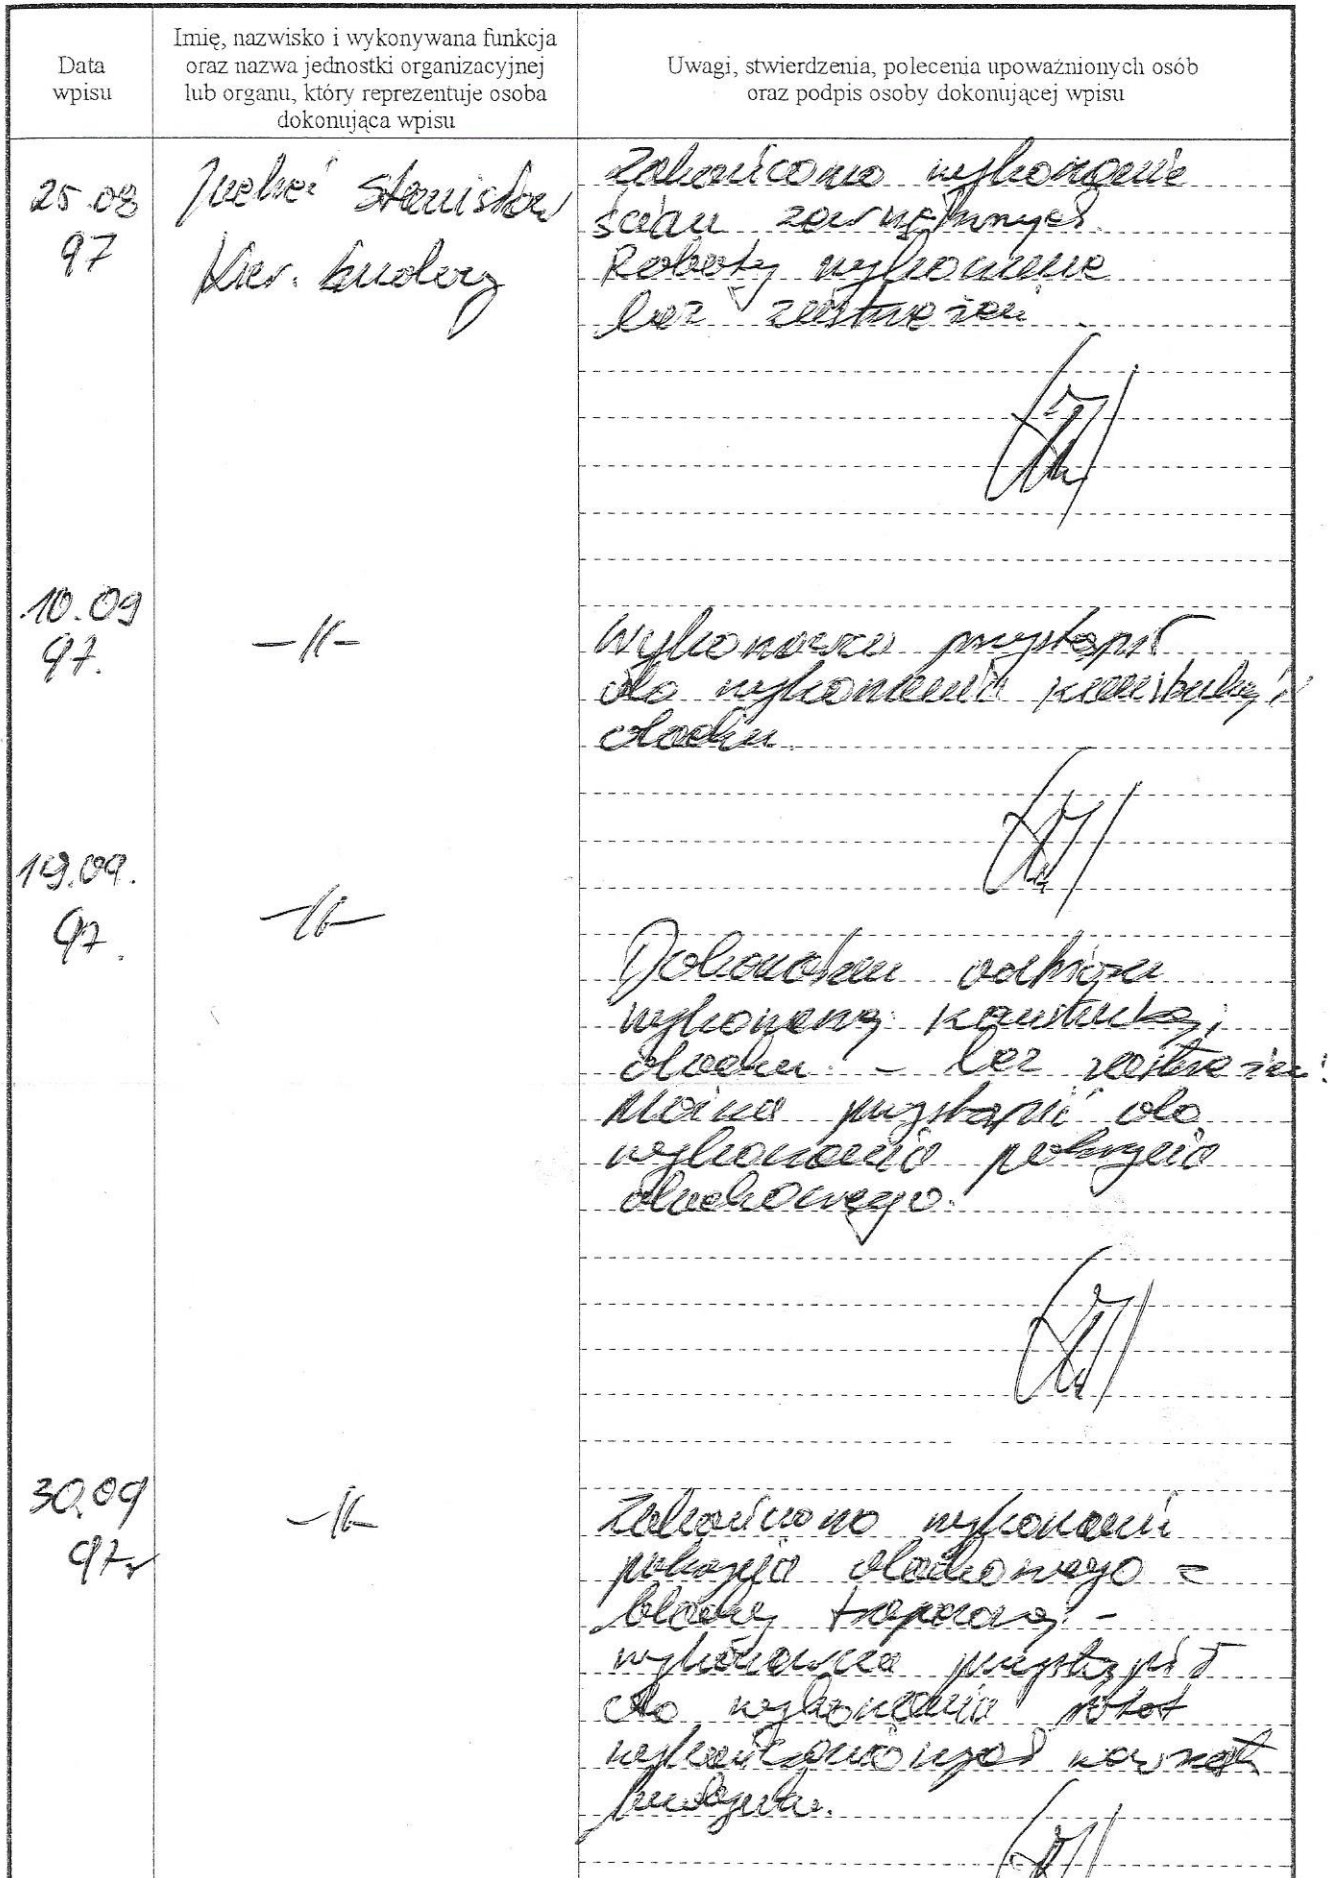 Data
wpisu
Imię, nazwisko i wykonywana funkcja
oraz nazwa jednostki organizacyjnej
lub organu, który reprezentuje osoba
dokonująca wpisu
Uwagi, stwierdzenia, polecenia upoważnionych osób
oraz podpis osoby dokonującej wpisu
25.08
97
Stanisław
Kier. budowy
Zakończono wykonanie
ścian zewnętrznych.
Roboty wykonane
bez zastrzeżeń.
10.09
97.
-//-
Wykonawca przystąpił
do wykonania konstrukcji
dachu.
19.09.
97.
-//-
Dokonałem odbioru
wykonanej konstrukcji
dachu - bez zastrzeżeń.
Można przystąpić do
wykonania pokrycia
dachowego.
30.09
97r
-//-
Zakończono wykonanie
pokrycia dachowego z
blachy trapezowej -
wykonawca przystąpił
do wykonania robót
wykończeniowych wewnątrz
budynku.